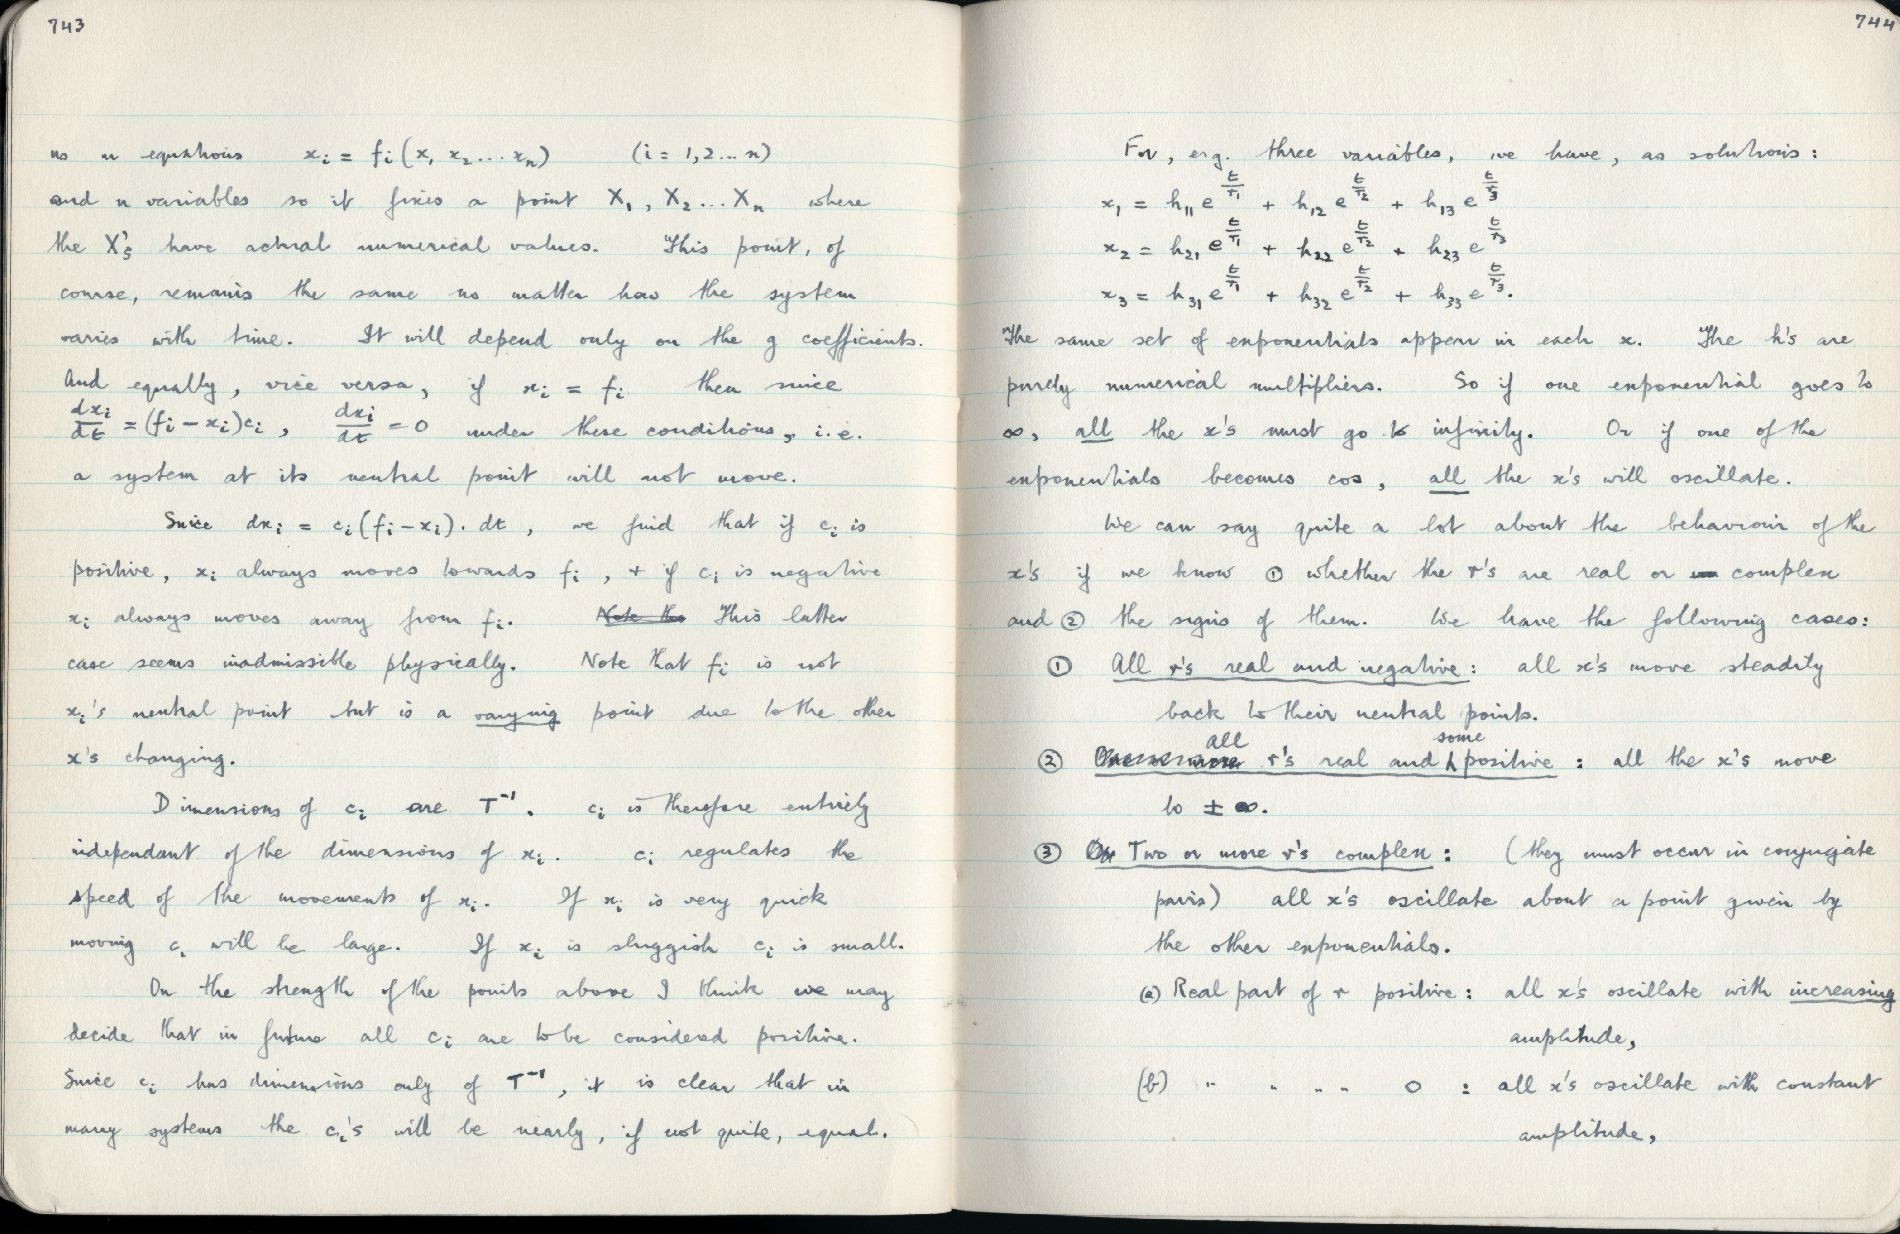 743
as n equations xᵢ = fᵢ(x, x₂ ... xₙ) (i = 1,2 ... n)
and n variables so it fixes a point X₁, X₂ ... Xₙ where
the X's have actual numerical values. This point, of
course, remains the same no matter how the system
varies with time. It will depend only on the g coefficients.
And equally, vice versa, if xᵢ = fᵢ then since
dxᵢ/dt = (fᵢ - xᵢ)cᵢ, dxᵢ/dt = 0 under these conditions, i.e.
a system at its neutral point will not move.
Since dxᵢ = cᵢ(fᵢ - xᵢ). dt, we find that if cᵢ is
positive, xᵢ always moves towards fᵢ, + if cᵢ is negative
xᵢ always moves away from fᵢ. Note the This latter
case seems inadmissible physically. Note that fᵢ is not
xᵢ's neutral point but is a varying point due to the other
x's changing.
Dimensions of cᵢ are T⁻¹. cᵢ is therefore entirely
independant of the dimensions of xᵢ. cᵢ regulates the
speed of the movements of xᵢ. If xᵢ is very quick
moving cᵢ will be large. If xᵢ is sluggish cᵢ is small.
On the strength of the points above I think we may
decide that in future all cᵢ are to be considered positive.
Since cᵢ has dimensions only of T⁻¹, it is clear that in
many systems the cᵢ's will be nearly, if not quite, equal.
744
For, e.g. three variables, we have, as solutions:
x₁ = h₁₁e^(t/r₁) + h₁₂e^(t/r₂) + h₁₃e^(t/r₃)
x₂ = h₂₁e^(t/r₁) + h₂₂e^(t/r₂) + h₂₃e^(t/r₃)
x₃ = h₃₁e^(t/r₁) + h₃₂e^(t/r₂) + h₃₃e^(t/r₃).
The same set of exponentials appear in each x. The h's are
purely numerical multipliers. So if one exponential goes to
∞, all the x's must go to infinity. Or if one of the
exponentials becomes cos, all the x's will oscillate.
We can say quite a lot about the behaviour of the
x's if we know ① whether the r's are real or complex
and ② the signs of them. We have the following cases:
① All r's real and negative: all x's move steadily
back to their neutral points.
② One or more all r's real and some positive: all the x's move
to ± ∞.
③ Two or more r's complex: (they must occur in conjugate
pairs) all x's oscillate about a point given by
the other exponentials.
(a) Real part of r positive: all x's oscillate with increasing
amplitude,
(b) " " " " 0 : all x's oscillate with constant
amplitude,